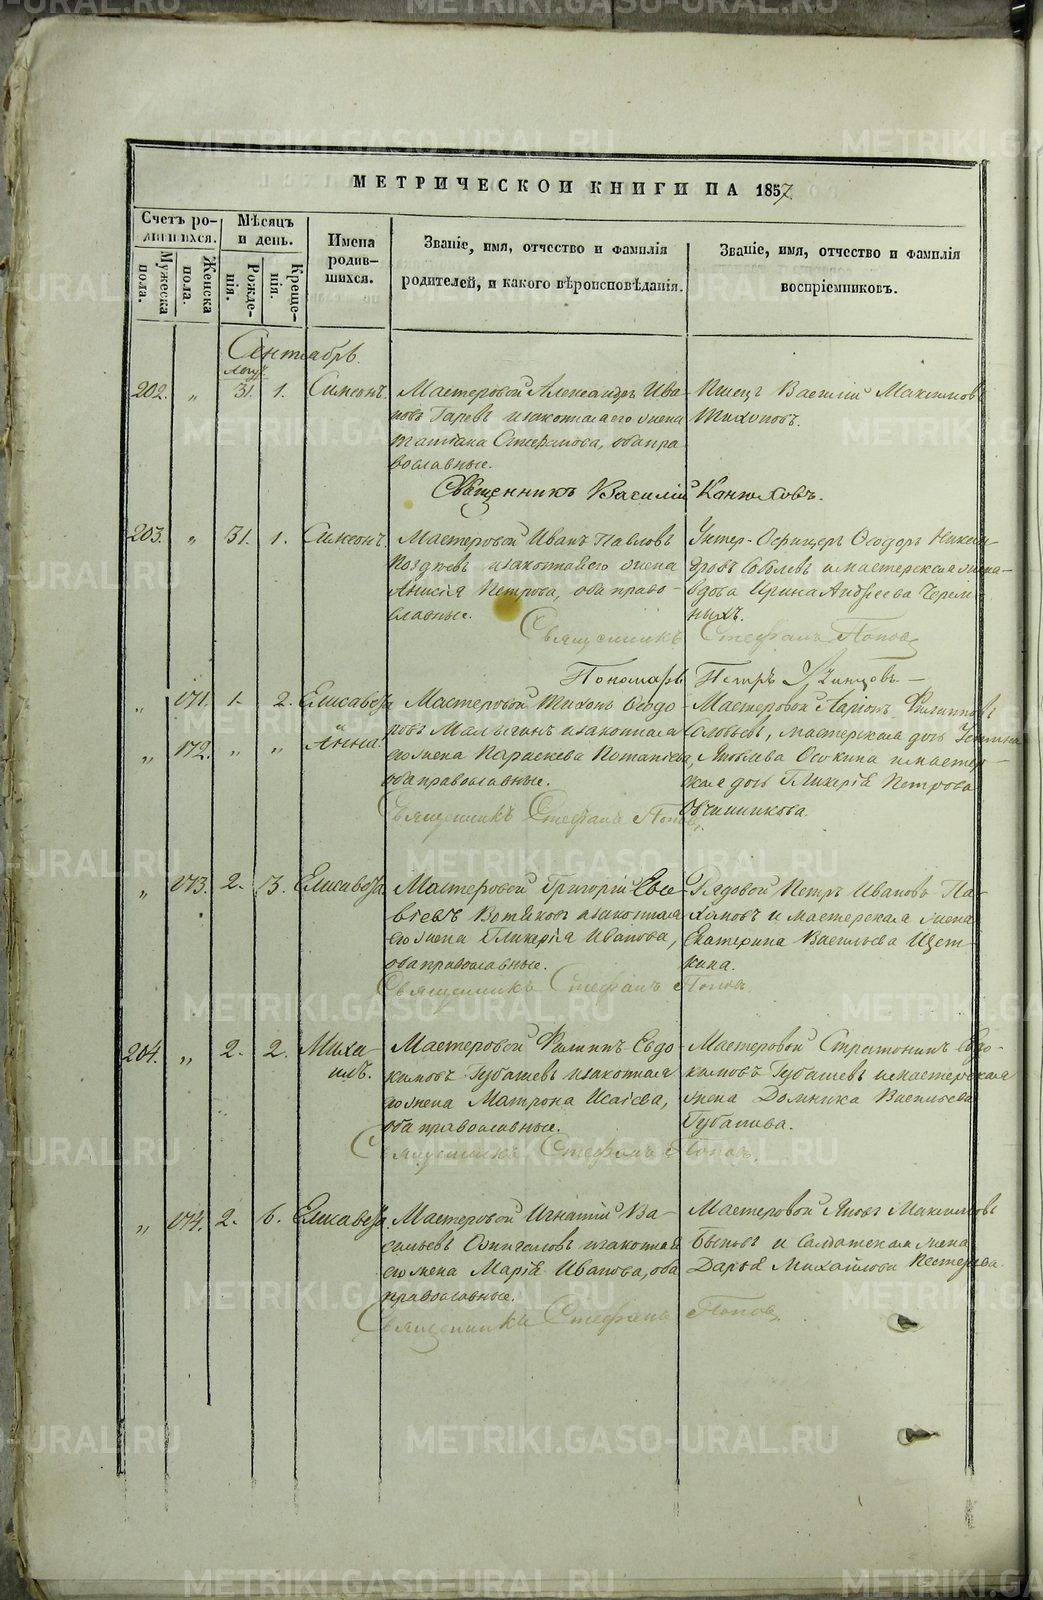 МЕТРИЧЕСКОЙ КНИГИ НА 1857
Счетъ родившихся.
Мѣсяцъ и день.
Имена родившихся.
Званіе, имя, отчество и фамилія родителей, и какого вѣроисповѣданія.
Званіе, имя, отчество и фамилія воспріемниковъ.
Мужеска пола.
Женска пола.
Рожденія.
Крещенія.
Сентябрь
202. „ 31. 1. Симеонъ.
Мастеровой Александръ Ива-
новъ Гаревъ и законная его жена
Татіана Стефанова, оба пра
вославные.
Писецъ Василій Максимовъ
Тихоновъ.
Священникъ Василій Конюховъ.
203. „ 31. 1. Симеонъ.
Мастеровой Иванъ Павловъ
Поздѣевъ и законная его жена
Анисія Петрова, оба право-
славные.
Унтер-Офицеръ Ѳеодоръ
и мастерская жена-
вдова Ирина Андреева Черем-
ныхъ.
Священникъ Стефанъ Поповъ
Пономарь Петръ
„ 171. 1. 2. Елисавета
„ 172. „ „ Анна.
Мастеровой Тихонъ Ѳеодо
ровъ Малыгинъ и законная
его жена Параскева Потапіева,
оба православные.
Мастеровой Ларіонъ Филипповъ
Соловьевъ, мастерская дочь Устинья
Яковлева Осокина и мастер-
ская дочь Гликерія Петрова
Овчинникова.
Священникъ Стефанъ Поповъ,
„ 173. 2. 3. Елисавета
Мастеровой Григорій Евсе-
віевъ Вотяковъ и законная
его жена Гликерія Иванова,
оба православные.
Рядовой Петръ Ивановъ Па-
хомовъ и мастерская жена
Екатерина Васильева Щет-
кина.
Священникъ Стефанъ Поповъ.
204. „ 2. 2. Миха-
илъ.
Мастеровой Филиппъ Евдо
кимовъ Губашевъ и законная
его жена Матрона Исаіева,
оба православные.
Мастеровой Стратоникъ Евдо-
кимовъ Губашевъ и мастерская
жена Домника Васильева
Губашева.
Священникъ Стефанъ Поповъ,
„ 174. 2. 6. Елисавета.
Мастеровой Игнатій Ва-
сильевъ Ожигановъ и законная
его жена Марія Иванова, оба
православные.
Мастеровой Яковъ Максимовъ
Быковъ и солдатская жена
Дарья Михайлова Пестерева.
Священникъ Стефанъ Поповъ
METRIKI.GASO-URAL.RU